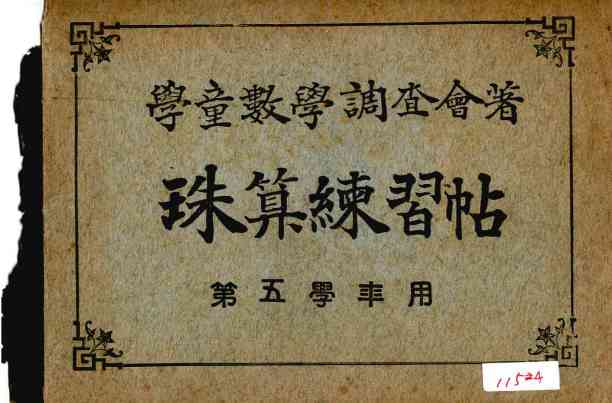 學童數學調査會著
珠算練習帖
第五學年用
11524